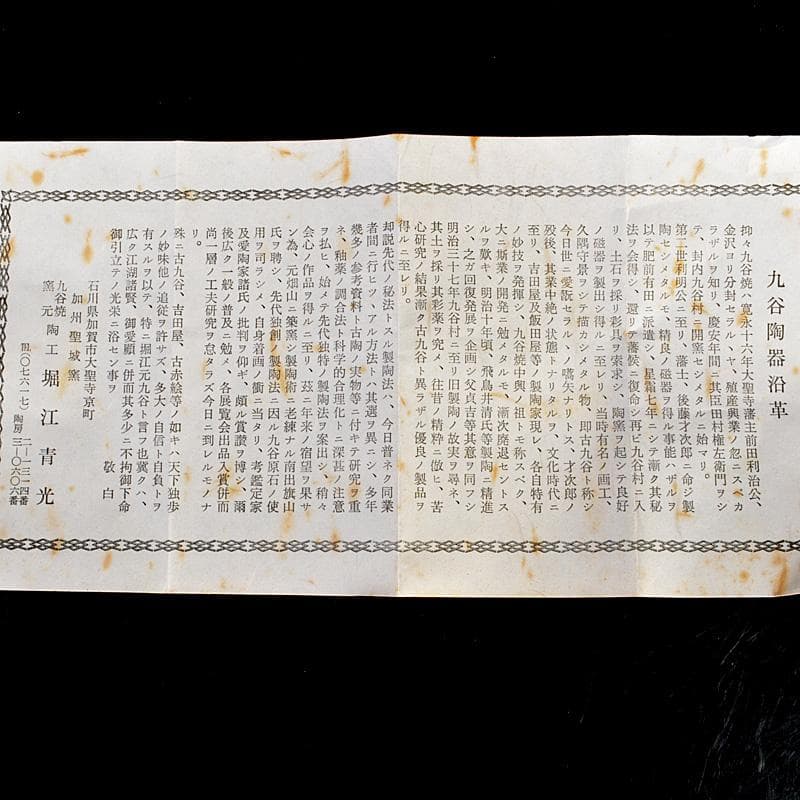 九谷陶器沿革
抑々九谷焼ハ寛永十六年大聖寺藩主前田利治公、
金沢ヨリ分封セラルヽヤ、殖産興業ノ忽ニスベカ
ラザルヲ知リ、慶安年間ニ其臣田村権左衛門ヲシ
テ、封内九谷村ニ開窯セシメタルニ始マリ。
第二世利明公ニ至リ、藩士、後藤才次郎ニ命ジ製
陶セシメタルモ、精良ノ磁器ヲ得ル事能ハザルヲ
以テ肥前有田ニ派遣シ、星霜七年ニシテ漸ク其秘
法ヲ会得シ、還リテ藩侯ニ復命シ再ビ九谷村ニ入
リ、土石ヲ採リ彩具ヲ索求シ、陶窯ヲ起シテ良好
ノ磁器ヲ製出シ得ルニ至レリ、当時有名ノ画工、
久隅守景ヲシテ描カシメタル物、即古九谷ト称シ
今日世ニ愛翫セラル、ノ嚆矢ナリトス、才次郎ノ
歿後、其業中絶ノ状態トナリタルヲ、文化時代ニ
至リ、吉田屋及飯田屋等ノ製陶家現レ、各自特有
ノ妙技ヲ発揮シ、九谷焼中興ノ祖トモ称スベク、
大ニ斯業ノ開発ニ勉メタルモ、漸次廃退セントス
ルヲ歎キ、明治十年頃、飛鳥井清氏等製陶ニ精進
シ、之ガ回復発展ヲ企画シ父貞吉等其意ヲ同フシ
明治三十七年九谷村ニ至リ旧製陶ノ故実ヲ尋ネ、
其土ヲ採リ其彩薬ヲ究メ、往昔ノ精粋ニ倣ヒ、苦
心研究ノ結果漸ク古九谷ト異ラザル優良ノ製品ヲ
得ルニ至レリ。
却説先代ノ秘法トスル製陶法ハ、今日普ネク同業
者間ニ行ヒツヽアル方法トハ其選ヲ異ニシ、多年
幾多ノ参考資料ト古陶ノ実物等ニ付キテ研究ヲ重
ネ、釉薬ノ調合法ト科学的合理化トニ深甚ノ注意
ヲ払ヒ、始メテ先代独特ノ製陶法ヲ案出シ、稍々
会心ノ作品ヲ得ルニ至リ、茲ニ年来ノ宿望ヲ果サ
ン為、元畑山ニ築窯シ製陶術ニ老練ナル南出旗山
氏ヲ聘シ、先代独創ノ製陶法ニ因ル九谷原石ノ使
用ヲ司ラシメ、自身着画ノ衝ニ当タリ、考鑑定家
及愛陶家諸氏ノ批判ヲ仰ギ、頗ル賞讃ヲ博シ、爾
後広ク一般ノ普及ニ勉メ、各展覧会出品入賞併而
尚一層ノ工夫研究ヲ怠タラズ今日ニ到レルモノナ
リ。
殊ニ古九谷、吉田屋、古赤絵等ノ如キハ天下独歩
ノ妙味他ノ追従ヲ許サズ、多大ノ自信ト自負トヲ
有スルヲ以テ、特ニ堀江元九谷ト言フ也冀クハ、
広ク江湖諸賢、御愛顧ニ併而其多少ニ不拘御下命
御引立テノ光栄ニ浴セン事ヲ
敬白
石川県加賀市大聖寺京町
加州聖城窯
九谷焼
窯元 陶工 堀江青光
電(〇七六一七) 二―三一四番
陶房 三―〇六〇六番